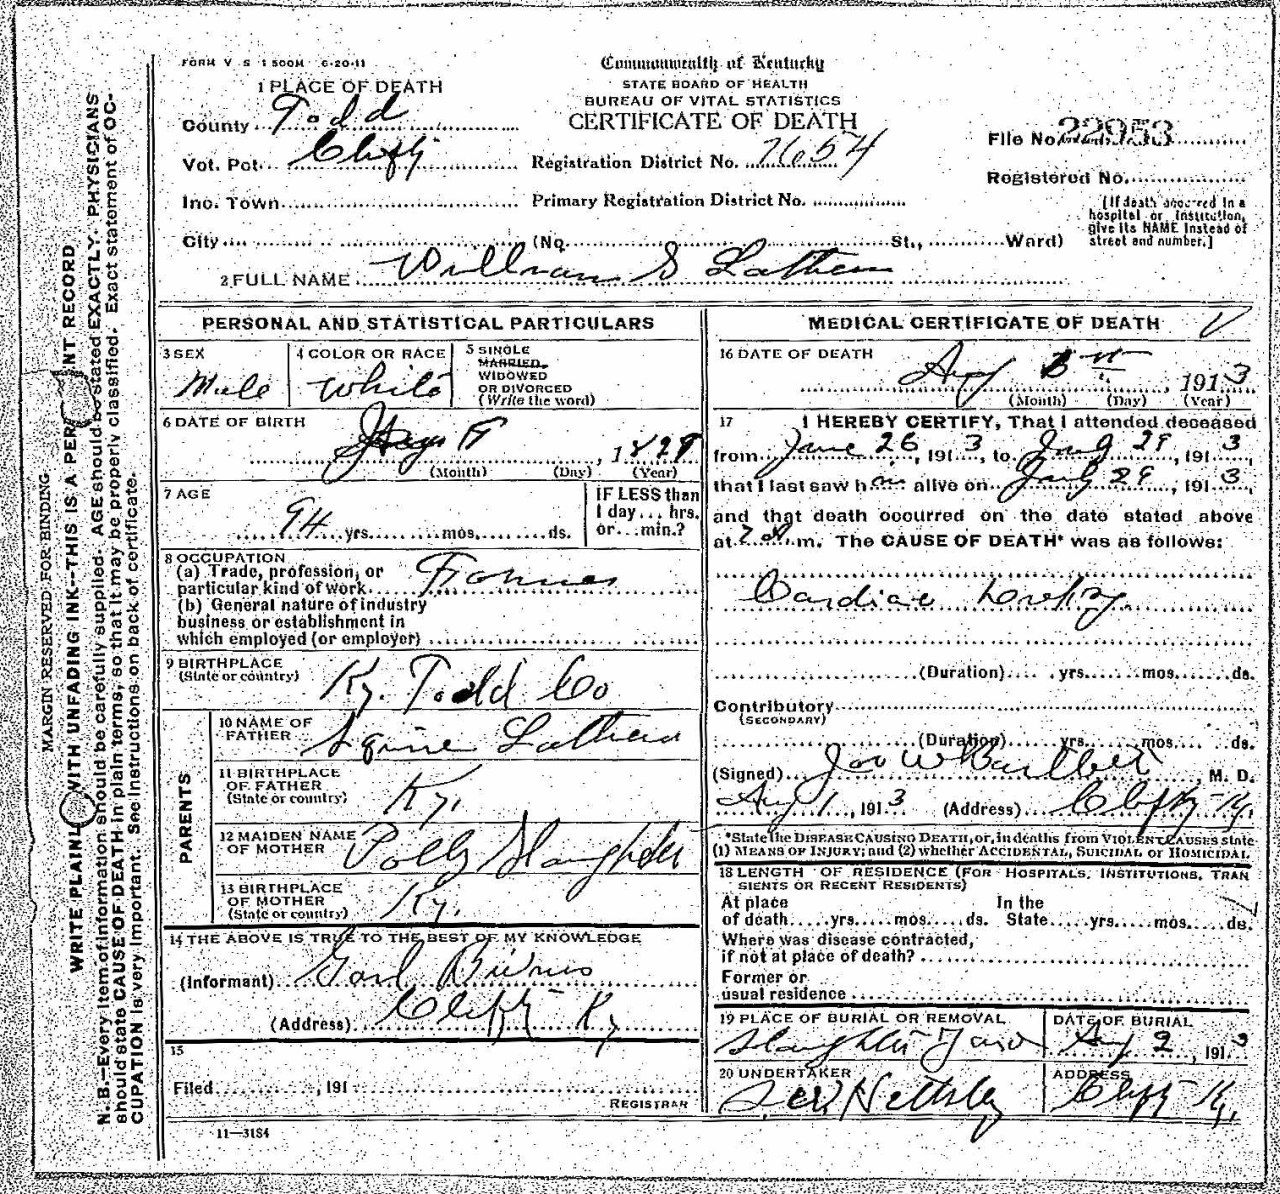 FORM V S 1 500M 6-20-11
Commonwealth of Kentucky
STATE BOARD OF HEALTH
BUREAU OF VITAL STATISTICS
CERTIFICATE OF DEATH
1 PLACE OF DEATH
County Todd
Vot. Pct. Clifty
Registration District No. 7654
File No. 22953
Registered No.
Inc. Town
Primary Registration District No.
[If death occurred in a
hospital or Institution,
give its NAME instead of
street and number.]
City (No. St., Ward)
2 FULL NAME William S Lathem
PERSONAL AND STATISTICAL PARTICULARS
3 SEX
Male
4 COLOR OR RACE
White
5 SINGLE
MARRIED,
WIDOWED
OR DIVORCED
(Write the word)
6 DATE OF BIRTH
, 1829
(Month) (Day) (Year)
7 AGE
94 yrs. mos. ds.
IF LESS than
1 day... hrs.
or...min.?
8 OCCUPATION
(a) Trade, profession, or
particular kind of work Farmer
(b) General nature of industry
business or establishment in
which employed (or employer)
9 BIRTHPLACE
(State or country)
Ky. Todd Co
PARENTS
10 NAME OF
FATHER
Squire Lathem
11 BIRTHPLACE
OF FATHER
(State or country)
Ky.
12 MAIDEN NAME
OF MOTHER
Polly Slaughter
13 BIRTHPLACE
OF MOTHER
(State or country)
Ky.
14 THE ABOVE IS TRUE TO THE BEST OF MY KNOWLEDGE
(Informant)
(Address) Clifty Ky
15
Filed , 191
REGISTRAR
11—3184
MEDICAL CERTIFICATE OF DEATH
16 DATE OF DEATH
Aug , 1913
(Month) (Day) (Year)
17 I HEREBY CERTIFY, That I attended deceased
from June 26, 1913, to July 29, 1913
that I last saw him alive on July 29, 1913,
and that death occurred on the date stated above
at 7 m. The CAUSE OF DEATH* was as follows:
Cardiac Dropsy
(Duration) yrs. mos. ds.
Contributory
(SECONDARY)
(Duration) yrs. mos. ds.
(Signed) Joo W Bartlett, M. D.
Aug 1, 1913 (Address) Clifty Ky.
*State the DISEASE CAUSING DEATH, or, in deaths from VIOLENT CAUSES state
(1) MEANS OF INJURY; and (2) whether ACCIDENTAL, SUICIDAL or HOMICIDAL
18 LENGTH OF RESIDENCE (FOR HOSPITALS, INSTITUTIONS, TRAN
SIENTS OR RECENT RESIDENTS)
At place
of death yrs. mos. ds.
In the
State yrs. mos. ds.
Where was disease contracted,
if not at place of death?
Former or
usual residence
19 PLACE OF BURIAL OR REMOVAL
Slaughter Yard
DATE OF BURIAL
Aug 2, 1913
20 UNDERTAKER
ADDRESS
Clifty Ky.
MARGIN RESERVED FOR BINDING
WRITE PLAINLY WITH UNFADING INK--THIS IS A PERMANENT RECORD
N. B.—Every item of information should be carefully supplied. AGE should be stated EXACTLY. PHYSICIANS
should state CAUSE OF DEATH in plain terms, so that it may be properly classified. Exact statement of OC-
CUPATION is very important. See instructions on back of certificate.